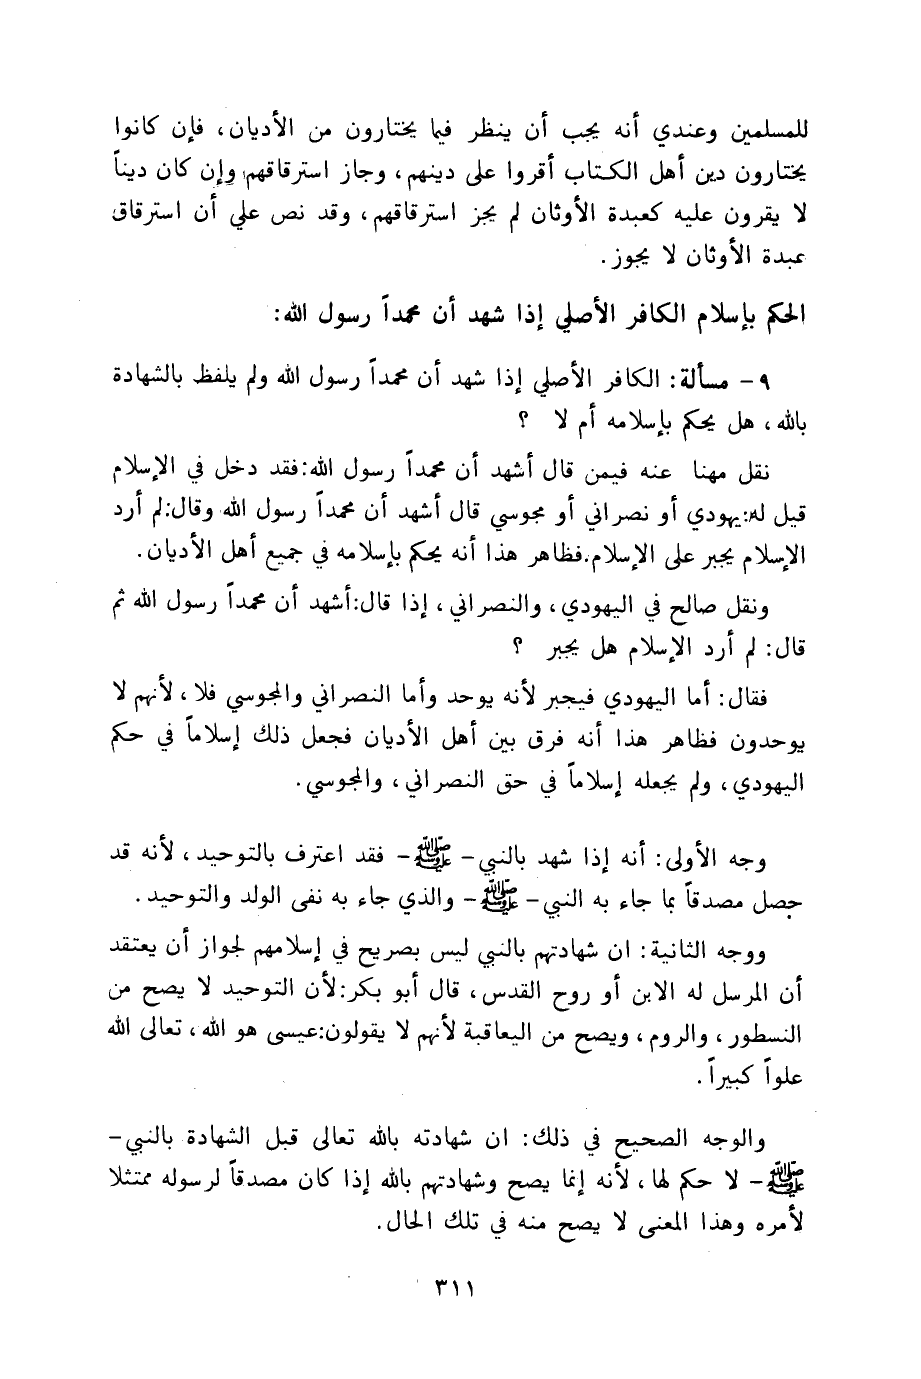 للمسلمين وعندي أنه يجب أن ينظر فيما يختارون من الأديان، فإن كانوا
يختارون دين أهل الكتاب أقروا على دينهم، وجاز استرقاقهم، وإن كان ديناً
لا يقرون عليه كعبدة الأوثان لم يجز استرقاقهم، وقد نص على أن استرقاق
عبدة الأوثان لا يجوز.
الحكم بإسلام الكافر الأصلي إذا شهد أن محمداً رسول الله:
٩ - مسألة: الكافر الأصلي إذا شهد أن محمداً رسول الله ولم يلفظ بالشهادة
بالله، هل يحكم بإسلامه أم لا ؟
نقل مهنا عنه فيمن قال أشهد أن محمداً رسول الله:فقد دخل في الإسلام
قيل له:يهودي أو نصراني أو مجوسي قال أشهد أن محمداً رسول الله وقال:لم أرد
الإسلام يجبر على الإسلام.فظاهر هذا أنه يحكم بإسلامه في جميع أهل الأديان.
ونقل صالح في اليهودي، والنصراني، إذا قال:أشهد أن محمداً رسول الله ثم
قال: لم أرد الإسلام هل يجبر ؟
فقال: أما اليهودي فيجبر لأنه يوحد وأما النصراني والمجوسي فلا، لأنهم لا
يوحدون فظاهر هذا أنه فرق بين أهل الأديان فجعل ذلك إسلاماً في حكم
اليهودي، ولم يجعله إسلاماً في حق النصراني، والمجوسي.
وجه الأولى: أنه إذا شهد بالنبي - ﷺ - فقد اعترف بالتوحيد، لأنه قد
حصل مصدقاً بما جاء به النبي - ﷺ - والذي جاء به نفى الولد والتوحيد.
ووجه الثانية: ان شهادتهم بالنبي ليس بصريح في إسلامهم لجواز أن يعتقد
أن المرسل له الابن أو روح القدس، قال أبو بكر:لأن التوحيد لا يصح من
النسطور، والروم، ويصح من اليعاقبة لأنهم لا يقولون:عيسى هو الله، تعالى الله
علواً كبيراً.
والوجه الصحيح في ذلك: ان شهادته بالله تعالى قبل الشهادة بالنبي -
ﷺ - لا حكم لها، لأنه إنما يصح وشهادتهم بالله إذا كان مصدقاً لرسوله ممتثلا
لأمره وهذا المعنى لا يصح منه في تلك الحال.
٣١١